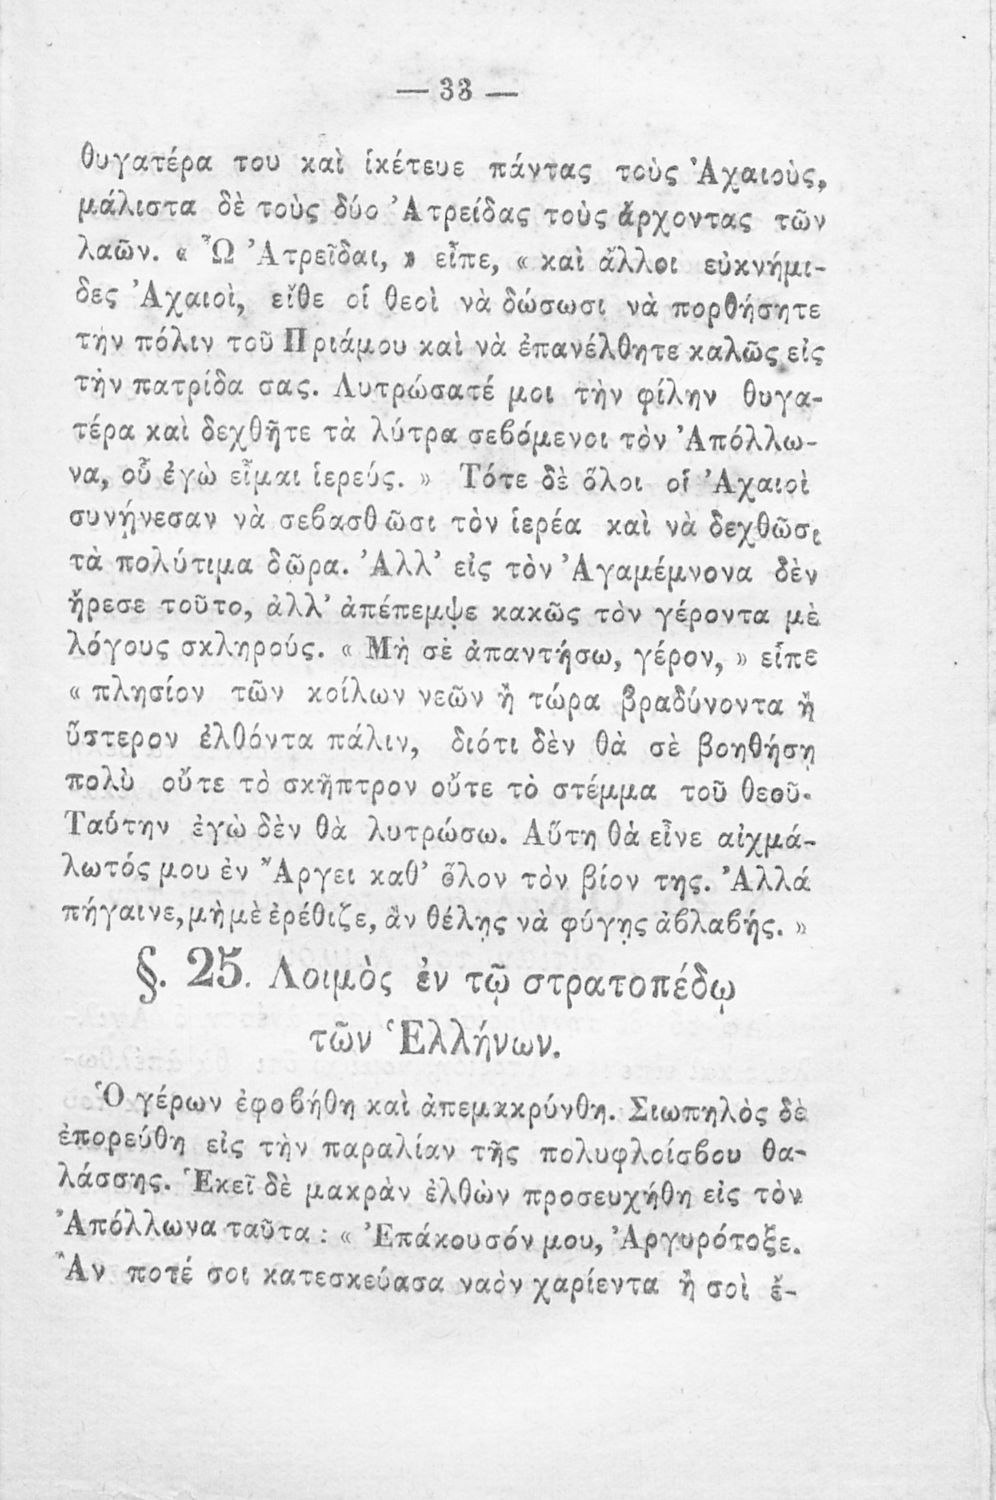 — 33 —
θυγατέρα του καὶ ἱκέτευε πάντας τοὺς Ἀχαιοὺς,
μάλιστα δὲ τοὺς δύο Ἀτρείδας τοὺς ἄρχοντας τῶν
λαῶν. « Ὦ Ἀτρεῖδαι, » εἶπε, « καὶ ἄλλοι εὐκνήμι-
δες Ἀχαιοὶ, εἴθε οἱ θεοὶ νὰ δώσωσι νὰ πορθήσητε
τὴν πόλιν τοῦ Πριάμου καὶ νὰ ἐπανέλθητε καλῶς εἰς
τὴν πατρίδα σας. Λυτρώσατέ μοι τὴν φίλην θυγα-
τέρα καὶ δεχθῆτε τὰ λύτρα σεβόμενοι τὸν Ἀπόλλω-
να, οὗ ἐγὼ εἶμαι ἱερεύς. » Τότε δὲ ὅλοι οἱ Ἀχαιοὶ
συνῄνεσαν νὰ σεβασθῶσι τὸν ἱερέα καὶ νὰ δεχθῶσι
τὰ πολύτιμα δῶρα. Ἀλλ’ εἰς τὸν Ἀγαμέμνονα δὲν
ἤρεσε τοῦτο, ἀλλ’ ἀπέπεμψε κακῶς τὸν γέροντα μὲ
λόγους σκληρούς. « Μὴ σὲ ἀπαντήσω, γέρον, » εἶπε
« πλησίον τῶν κοίλων νεῶν ἢ τώρα βραδύνοντα ἢ
ὕστερον ἐλθόντα πάλιν, διότι δὲν θὰ σὲ βοηθήσῃ
πολὺ οὔτε τὸ σκῆπτρον οὔτε τὸ στέμμα τοῦ θεοῦ.
Ταύτην ἐγὼ δὲν θὰ λυτρώσω. Αὕτη θὰ εἶνε αἰχμά-
λωτός μου ἐν Ἄργει καθ’ ὅλον τὸν βίον της. Ἀλλά
πήγαινε, μὴ μὲ ἐρέθιζε, ἂν θέλῃς νὰ φύγῃς ἀβλαβής. »
§. 25. Λοιμὸς ἐν τῷ στρατοπέδῳ
τῶν Ἑλλήνων.
Ὁ γέρων ἐφοβήθη καὶ ἀπεμακρύνθη. Σιωπηλὸς δὲ
ἐπορεύθη εἰς τὴν παραλίαν τῆς πολυφλοίσβου θα-
λάσσης. Ἐκεῖ δὲ μακρὰν ἐλθὼν προσευχήθη εἰς τὸν
Ἀπόλλωνα ταῦτα : « Ἐπάκουσόν μου, Ἀργυρότοξε.
Ἂν ποτέ σοι κατεσκεύασα ναὸν χαρίεντα ἢ σοὶ ἔ-